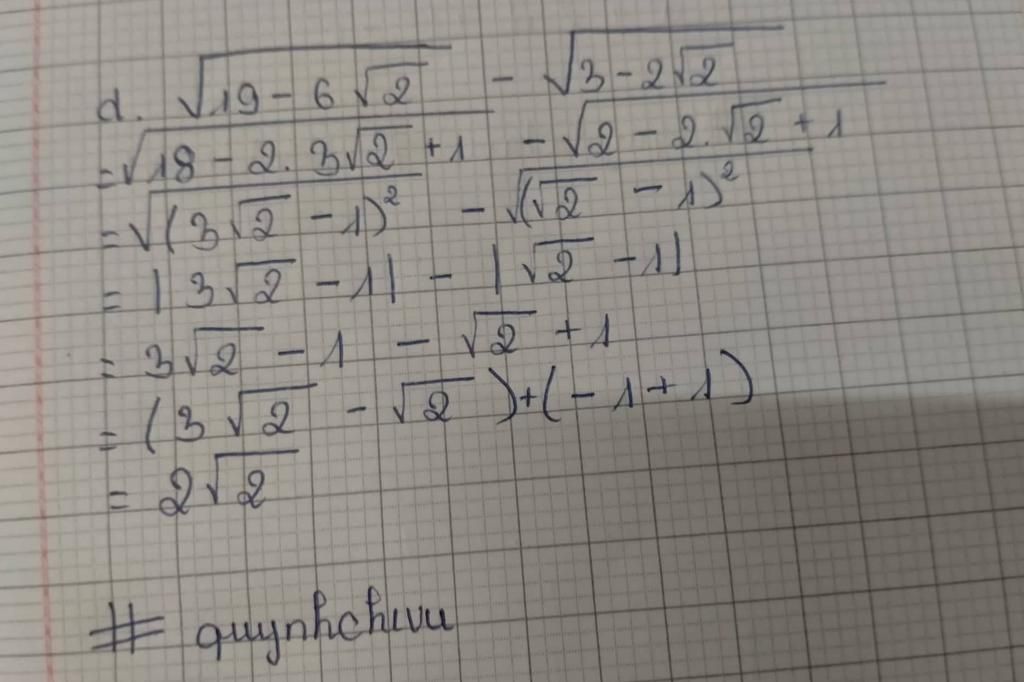 d. √(19 - 6√2) - √(3 - 2√2)
= √(18 - 2. 3√2 + 1) - √(2 - 2. √2 + 1)
= √((3√2 - 1)²) - √((√2 - 1)²)
= |3√2 - 1| - |√2 - 1|
= 3√2 - 1 - √2 + 1
= (3√2 - √2) + (- 1 + 1)
= 2√2
# quynhchivu